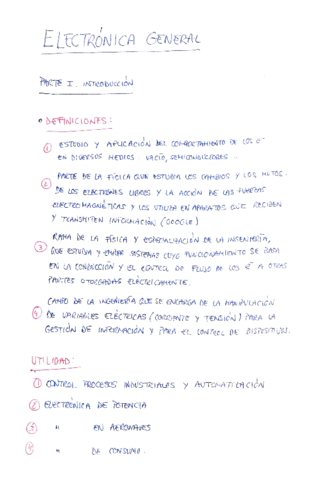 ELECTRÓNICA GENERAL
PARTE I. INTRODUCCIÓN
• DEFINICIONES:
① ESTUDIO Y APLICACIÓN DEL COMPORTAMIENTO DE LOS e⁻
EN DIVERSOS MEDIOS. VACÍO, SEMICONDUCTORES.
② PARTE DE LA FÍSICA QUE ESTUDIA LOS CAMBIOS Y LOS MVTOS.
DE LOS ELECTRONES LIBRES Y LA ACCIÓN DE LAS FUERZAS
ELECTROMAGNÉTICAS Y LOS UTILIZA EN APARATOS QUE RECIBEN
Y TRANSMITEN INFORMACIÓN (GOOGLE)
③ RAMA DE LA FÍSICA Y ESPECIALIZACIÓN DE LA INGENIERÍA,
QUE ESTUDIA Y EMPLEA SISTEMAS CUYO FUNCIONAMIENTO SE BASA
EN LA CONDUCCIÓN Y EL CONTROL DE FLUJO DE LOS e⁻ A OTRAS
PARTES CARGADAS ELÉCTRICAMENTE.
④ CAMPO DE LA INGENIERÍA QUE SE ENCARGA DE LA MANIPULACIÓN
DE VARIABLES ELÉCTRICAS (CORRIENTE Y TENSIÓN) PARA LA
GESTIÓN DE INFORMACIÓN Y PARA EL CONTROL DE DISPOSITIVOS.
UTILIDAD:
① CONTROL PROCESOS INDUSTRIALES Y AUTOMATIZACIÓN
② ELECTRÓNICA DE POTENCIA
③ " EN AERONAVES
④ " DE CONSUMO.